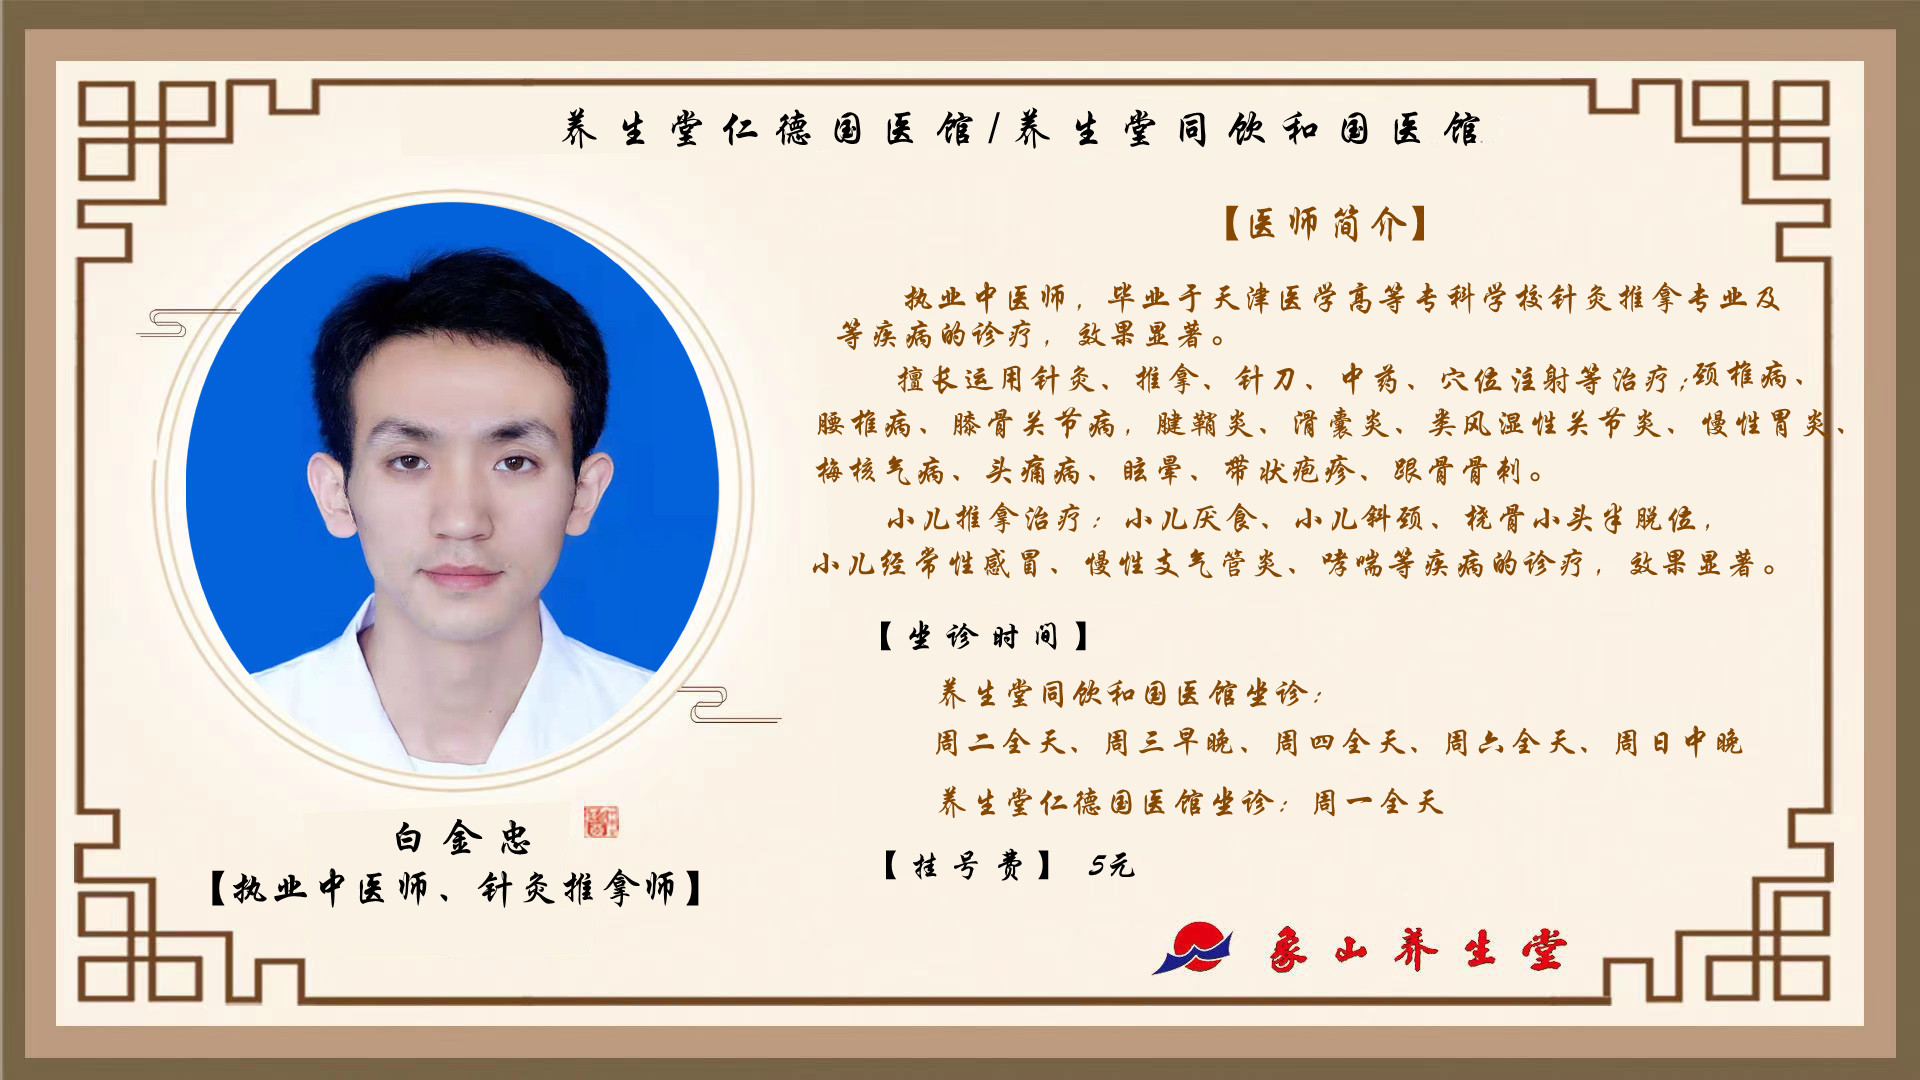 养生堂仁德国医馆/养生堂同饮和国医馆
【医师简介】
执业中医师，毕业于天津医学高等专科学校针灸推拿专业及
等疾病的诊疗，效果显著。
擅长运用针灸、推拿、针刀、中药、穴位注射等治疗;颈椎病、
腰椎病、膝骨关节病，腱鞘炎、滑囊炎、类风湿性关节炎、慢性胃炎、
梅核气病、头痛病、眩晕、带状疱疹、跟骨骨刺。
小儿推拿治疗：小儿厌食、小儿斜颈、桡骨小头半脱位，
小儿经常性感冒、慢性支气管炎、哮喘等疾病的诊疗，效果显著。
【坐诊时间】
养生堂同饮和国医馆坐诊：
周二全天、周三早晚、周四全天、周六全天、周日中晚
养生堂仁德国医馆坐诊：周一全天
【挂号费】 5元
白金忠
【执业中医师、针灸推拿师】
象山养生堂